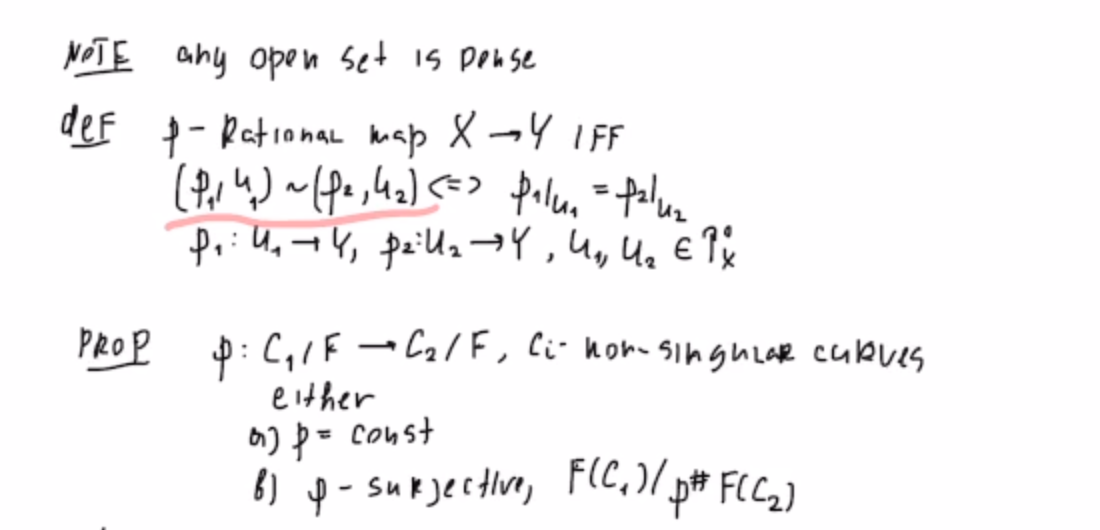 NOTE any open set is dense
def p - Rational map X → Y IFF
(p₁, U₁) ~ (p₂, U₂) <=> p₁|u₁ = p₂|u₂
p₁: U₁ → Y, p₂: U₂ → Y, U₁, U₂ ∈
PROP p: C₁/F → C₂/F, Ci - non-singular curves
either
a) p = const
b) p - surjective, F(C₁)/p# F(C₂)